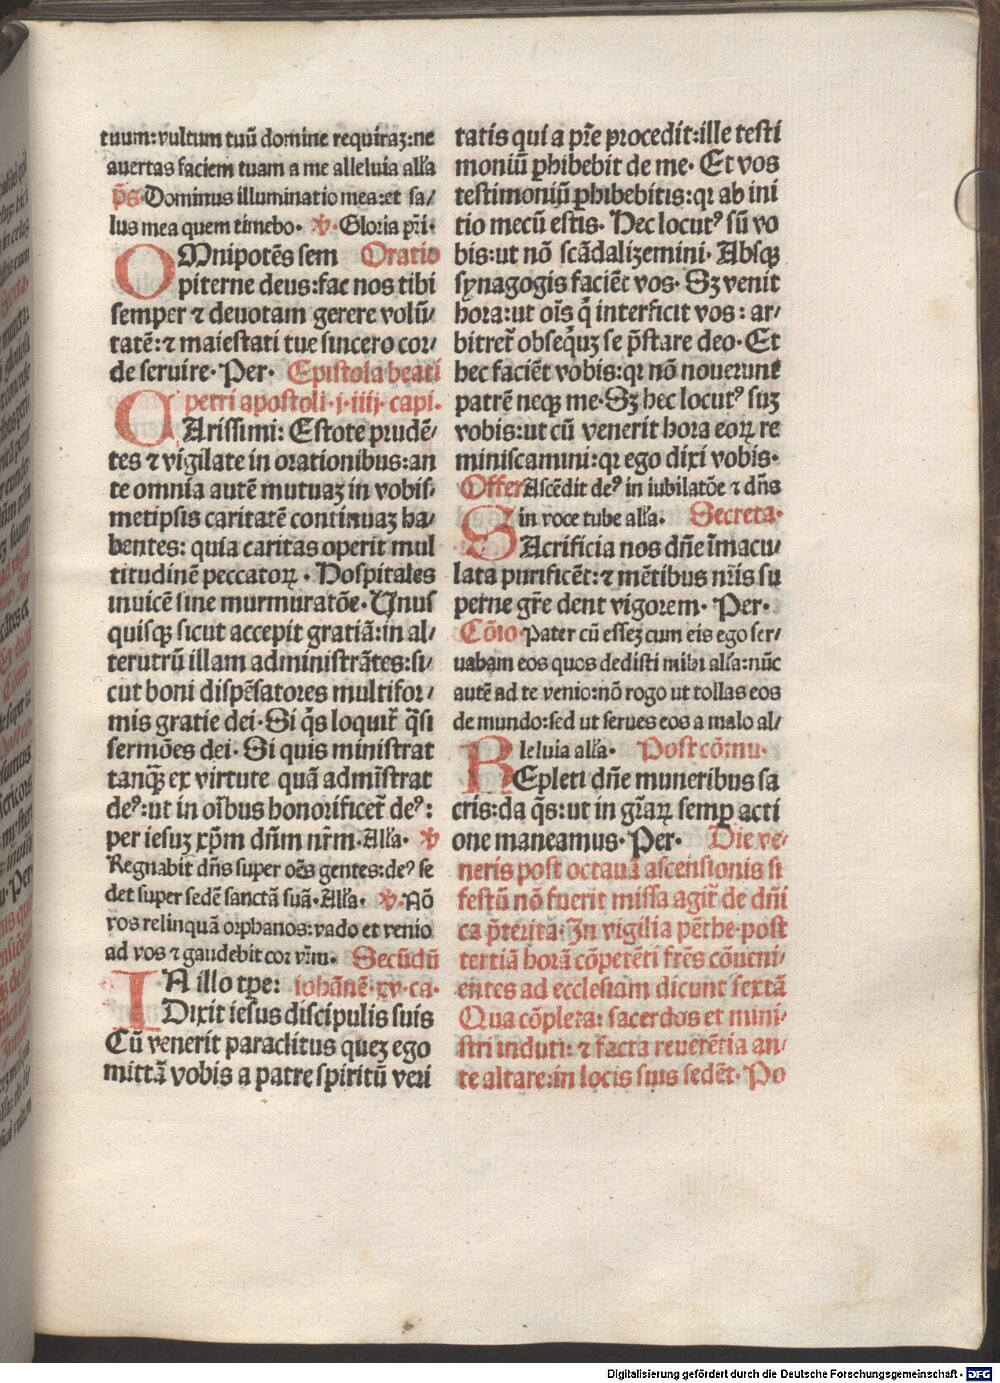 tuum:vultum tuū domine requiraʒ:ne
auertas faciem tuam a me alleluia all'a
p̄s·Dominus illuminatio mea:et sa/
lus mea quem timebo· ℣·Gloria pr̄i·
OMnipotēs sem Oratio
piterne deus:fac nos tibi
semper ⁊ deuotam gerere volū/
tatē:⁊ maiestati tue sincero cor/
de seruire·Per· Epistola beati
petri apostoli·j·iiij·capi·
CArissimi: Estote prudē/
tes ⁊ vigilate in orationibus:an
te omnia autē mutuaʒ in vobis/
metipsis caritatē continuaʒ ha/
bentes: quia caritas operit mul
titudinē peccatoꝝ· Hospitales
inuicē sine murmuratōe·Unus
quisqꝫ sicut accepit gratiā:in al/
terutrū illam administrātes:si/
cut boni dispēsatores multifor/
mis gratie dei·Si q̄s loquit̄ q̄si
sermōes dei·Si quis ministrat
tanqꝫ̄ ex virtute quā admīstrat
deꝰ:ut in oībus honorificet̄ deꝰ:
per iesuʒ xp̄m dn̄m nr̄m·All'a· ℣
Regnabit dn̄s super oēs gentes:deꝰ se
det super sedē sanctā suā·All'a· ℣·Nō
vos relinquā orphanos:vado et venio
ad vos ⁊ gaudebit cor vr̄m· Secūdū
IN illo tꝑe: iohānē·xv·ca·
Dixit iesus discipulis suis
Cū venerit paraclitus queʒ ego
mittā vobis a patre spiritū veri
tatis qui a pr̄e procedit:ille testi
moniū ꝑhibebit de me· Et vos
testimoniū ꝑhibebitis:qꝛ ab ini
tio mecū estis· Hec locutꝰ sū vo
bis:ut nō scādaliʒemini·Absqꝫ
synagogis faciēt vos· Sʒ venit
hora:ut oīs q̄ interficit vos: ar/
bitret̄ obseq̄uʒ se p̄stare deo·Et
hec faciēt vobis:qꝛ nō nouerunt
patrē neqꝫ me·Sʒ hec locutꝰ suʒ
vobis:ut cū venerit hora eoꝝ re
miniscamini:qꝛ ego dixi vobis·
OfferAscēdit deꝰ in iubilatōe ⁊ dn̄s
in voce tube all'a· Secreta·
SAcrificia nos dn̄e īmacu/
lata purificēt:⁊ mētibus nr̄is su
perne gr̄e dent vigorem· Per·
Cōio·Pater cū esseʒ cum eis ego ser/
uabam eos quos dedisti mihi all'a:nūc
autē ad te venio:nō rogo ut tollas eos
de mundo:sed ut serues eos a malo al/
leluia all'a· Postcōmu·
REpleti dn̄e muneribus sa
cris:da q̄s:ut in gr̄aꝝ semꝑ acti
one maneamus·Per· Die ve/
neris post octauā ascensionis si
festū nō fuerit missa agit̄ de dn̄i
ca p̄terita·In vigilia pēthe·post
tertiā horā cōpetēti fr̄es cōueni/
entes ad ecclesiam dicunt sextā
Qua cōpleta: sacerdos et mini/
stri induti: ⁊ facta reuerētia an/
te altare:in locis suis sedēt·Po
Digitalisierung gefördert durch die Deutsche Forschungsgemeinschaft - DFG